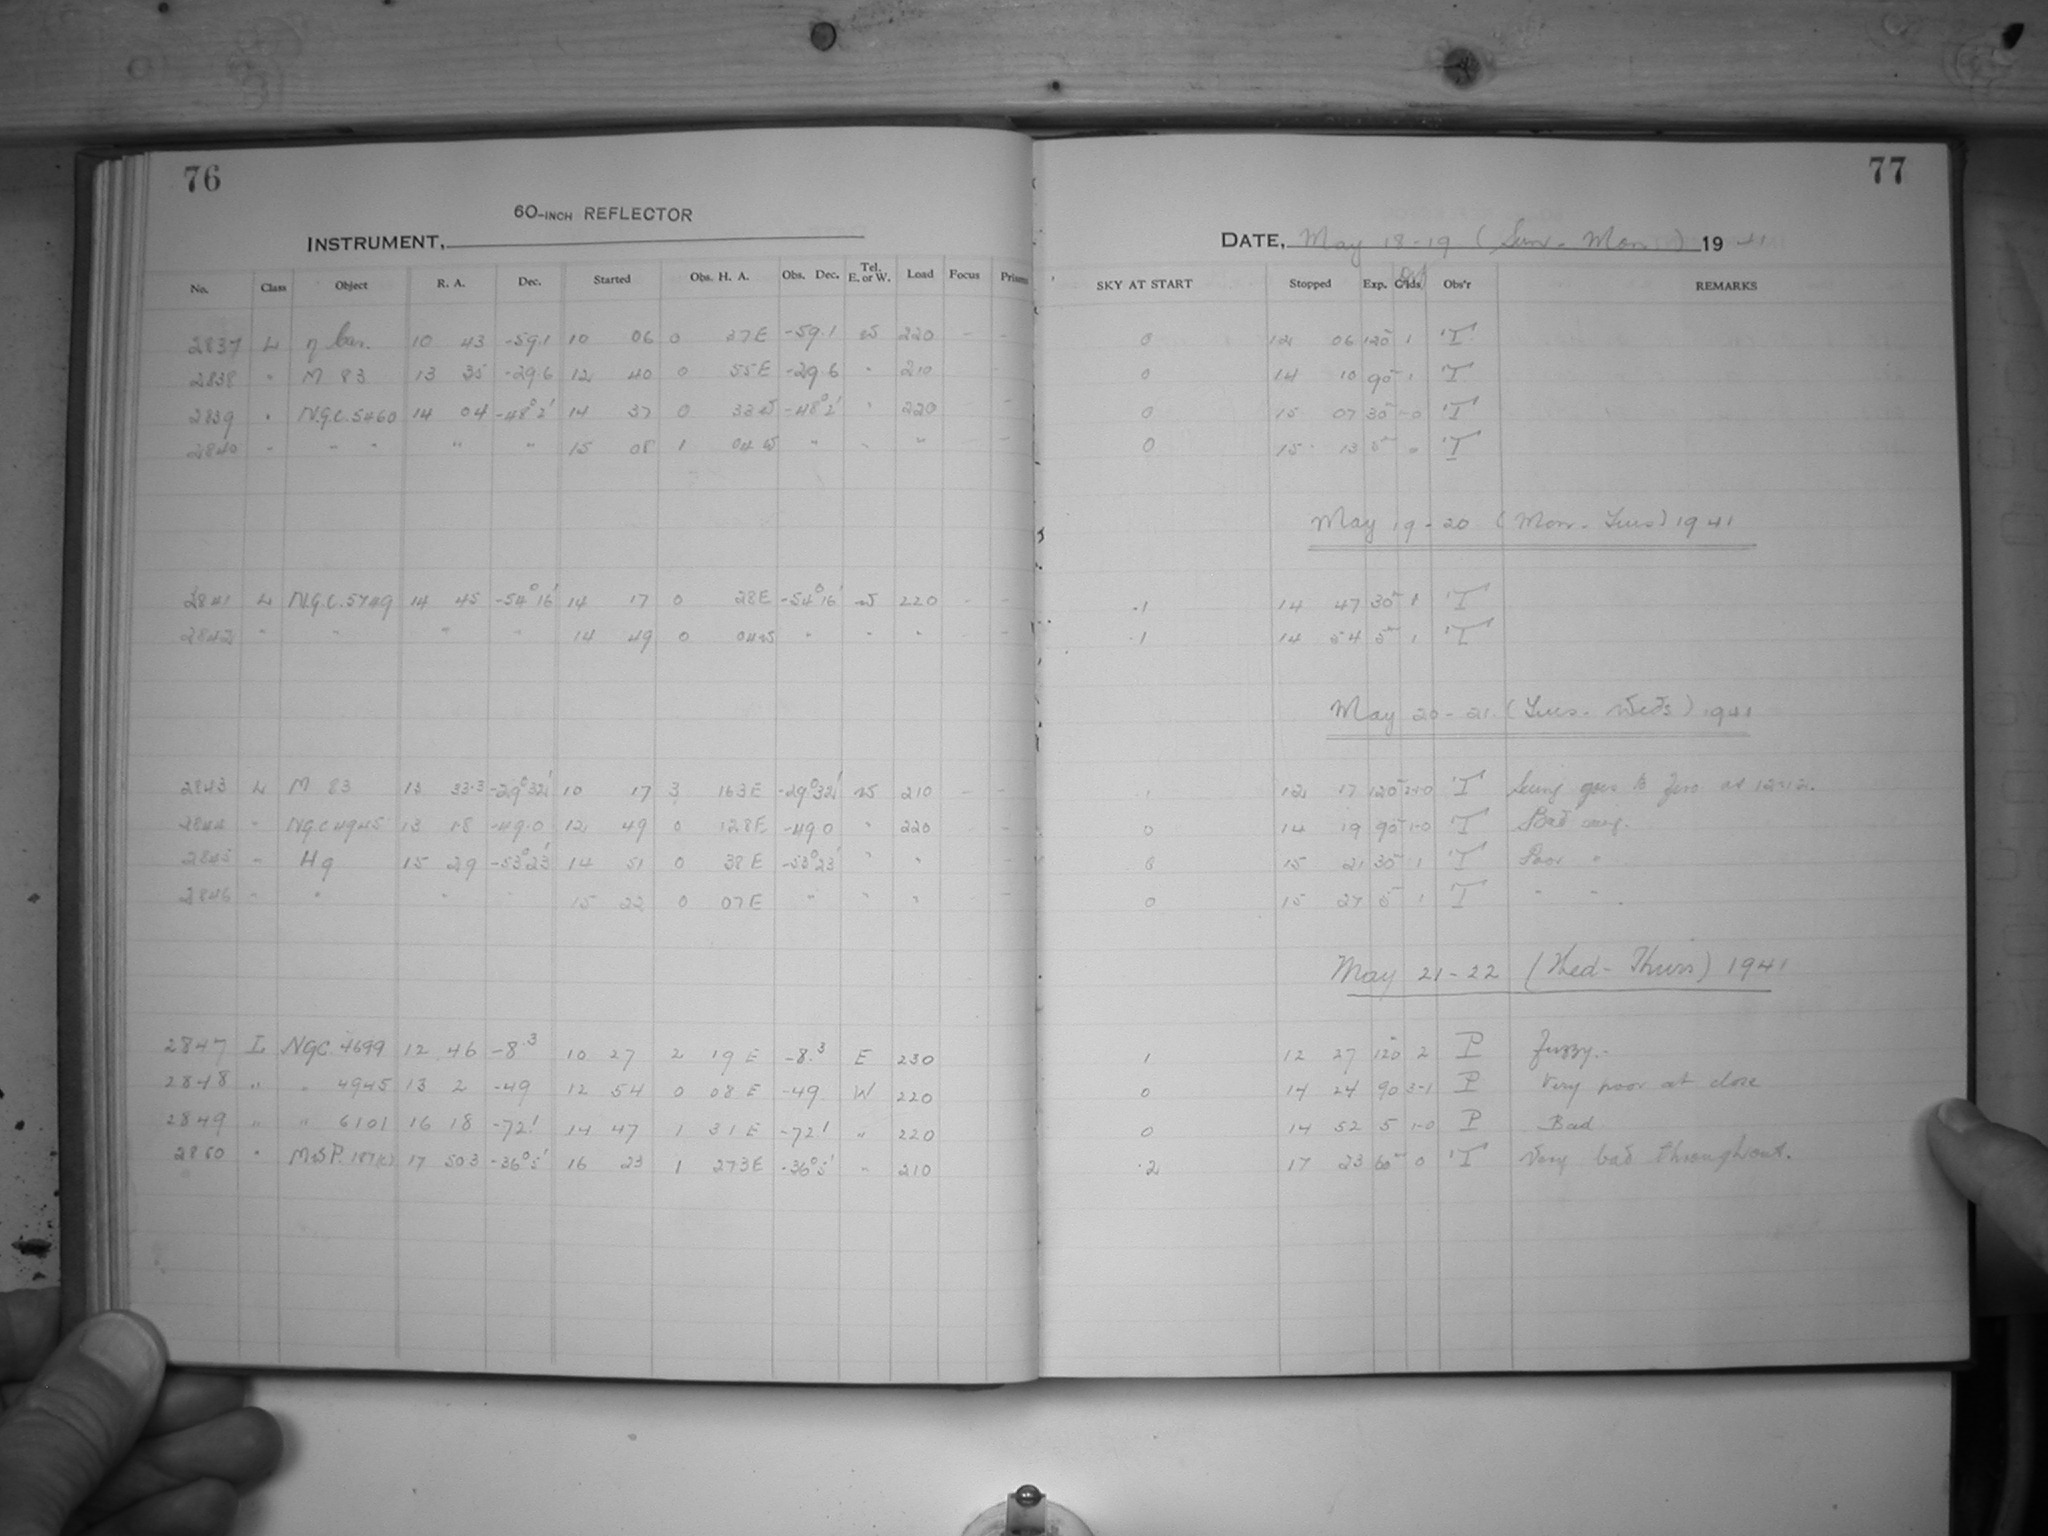 76
60-INCH REFLECTOR
INSTRUMENT,
No. Class Object R. A. Dec. Started Obs. H. A. Obs. Dec. Tel. E. or W. Load Focus
2837 L η Car. 10 43 -59.1 10 06 0 37E -59.1 W 220 - -
2838 " M 83 13 35 -29.6 12 40 0 55E -29.6 " 210 -
2839 " N.G.C. 5460 14 04 -48°2' 14 37 0 33W -48°2' " 220 -
2840 " " " " " 15 08 1 04W " " " -
2841 L N.G.C. 5749 14 45 -54°16' 14 17 0 28E -54°16' W 220 - -
2842 " " " " 14 49 0 04W " " " -
2843 L M 83 13 33.3 -29°32' 10 17 3 163E -29°32' W 210 - -
2844 " N.G.C 4945 13 -49.0 12 49 0 128E -49.0 " 220 -
2845 " 15 29 -53°23' 14 51 0 38E -53°23' " " -
2846 " " " " 15 22 0 07E " " " -
2847 L NGC. 4699 12 46 -8.3 10 27 2 19 E -8.3 E 230
2848 " " 4945 13 2 -49 12 54 0 08 E -49 W 220
2849 " " 6101 16 18 -72' 14 47 1 31 E -72' " 220
2850 " 17 503 -36°5' 16 23 1 273E -36°5' " 210
77
DATE, May 18-19 (Sun. - Mon.) 19 41
SKY AT START Stopped Exp. Obs'r REMARKS
0 12 06 120 1 'T'
0 14 10 90 1 'T'
0 15 07 30 1-0 'T'
0 15 13 5 0 'T'
May 19-20 (Mon. - Tues) 1941
.1 14 47 30 1 'T'
.1 14 54 5 1 'T'
May 20-21 (Tues. - Weds) 1941
12 17 120 2-0 'T' Seeing goes to zero at 12-12.
0 14 19 90 1-0 'T' Bad
0 15 21 30 1 'T' Poor "
0 15 27 5 1 'T' " "
May 21-22 (Wed - Thurs) 1941
1 12 27 120 2 P Fuzzy.-
0 14 24 90 3-1 P Very poor at close
0 14 52 5 1-0 P Bad
.2 17 23 60 0 'T' Very bad throughout.